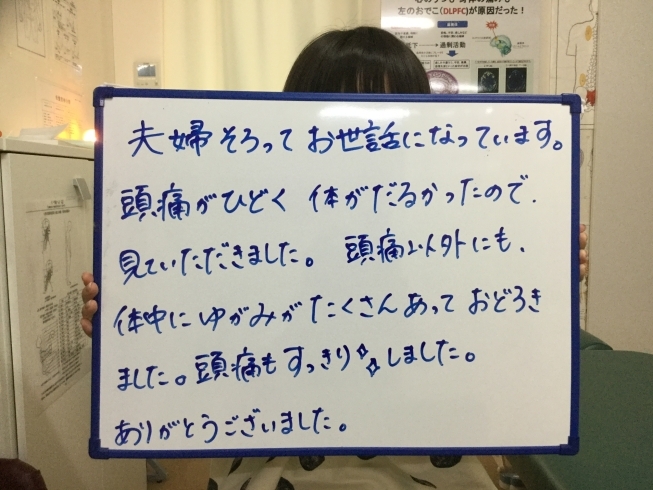 左のおでこ(DLPFC)が原因だった！
過剰活動
夫婦そろって お世話になっています。
頭痛がひどく 体がだるかったので、
見ていただきました。 頭痛以外にも、
体中にゆがみが たくさんあって おどろき
ました。頭痛もすっきり✧しました。
ありがとうございました。